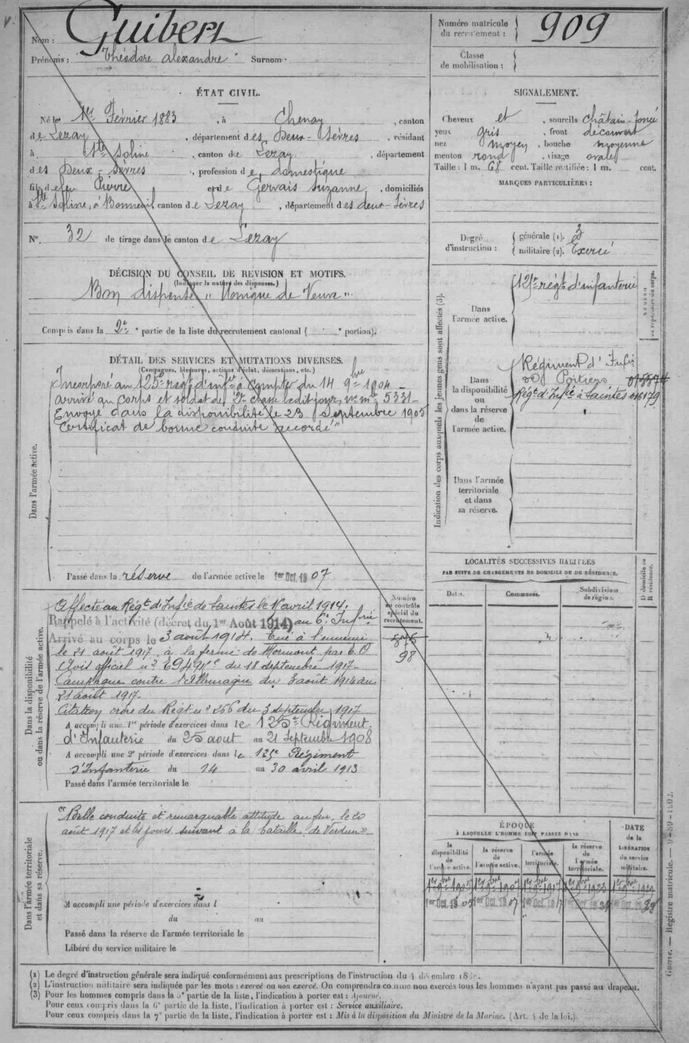 Nom : Guibert
Prénoms : Théodore Alexandre Surnom
Numéro matricule du recrutement : 909
Classe de mobilisation :
ÉTAT CIVIL.
Né le 1er Février 1883, à Chenay, canton
de Lezay, département des Deux-Sèvres, résidant
à Ste Soline, canton de Lezay, département
des Deux-Sèvres, profession de domestique
fils de feu Pierre et de Gervais Suzanne, domiciliés
à Ste Soline, à Bonneuil canton de Lezay, département des deux-Sèvres
N° 32 de tirage dans le canton de Lezay
DÉCISION DU CONSEIL DE REVISION ET MOTIFS.
(Indiquer la nature des dispenses.)
Bon dispensé
Compris dans la 2e partie de la liste du recrutement cantonal ( portion).
DÉTAIL DES SERVICES ET MUTATIONS DIVERSES.
(Campagnes, blessures, actions d'éclat, décorations, etc.)
Dans l'armée active.
Incorporé au 125e régt d'infie à compter du 14 9bre 1904
arrivé au corps et soldat de 2e classe ledit jour, no mle 5331
Envoyé dans la disponibilité le 23 Septembre 1905
"Certificat de bonne conduite accordé"
Passé dans la réserve de l'armée active le 1er Oct. 1907
Dans la disponibilité ou dans la réserve de l'armée active.
Affecté au Régt d'Infie de Saintes le 1er avril 1914.
Rappelé à l'activité (décret du 1er Août 1914) au 6e Infie
Arrivé au corps le 3 août 1914. Tué à l'ennemi
le 21 août 1917, à la ferme de Mormont
Avis officiel du 11 septembre 1917
Campagne contre l'Allemagne du 3 août 1914 au
21 août 1917.
Citation ordre du Régt no 266 du 3 septembre 1917
A accompli une 1re période d'exercices dans le 125e Régiment
d'Infanterie du 25 aout au 21 Septembre 1908
A accompli une 2e période d'exercices dans le 125e Régiment
d'Infanterie du 14 au 30 avril 1913
Passé dans l'armée territoriale le
Numéro au contrôle spécial du recrutement.
98
Dans l'armée territoriale et dans sa réserve.
"Belle conduite et remarquable attitude au feu, le 20
août 1917 et les jours suivant à la bataille de Verdun"
A accompli une période d'exercices dans l
du au
Passé dans la réserve de l'armée territoriale le
Libéré du service militaire le
SIGNALEMENT.
Cheveux et , sourcils châtain-foncé
yeux gris, front découvert
nez moyen, bouche moyenne
menton rond, visage ovale
Taille : 1 m. 61 cent. Taille rectifiée : 1 m. cent.
MARQUES PARTICULIÈRES :
Degré d'instruction :
générale (1). 3
militaire (2). Exercé
Indication des corps auxquels les jeunes gens sont affectés (3).
Dans l'armée active.
125e régt d'infanterie
Dans la disponibilité ou dans la réserve de l'armée active.
Régiment d'Infie
de Poitiers
Régt d'Infie à Saintes
Dans l'armée territoriale et dans sa réserve.
LOCALITÉS SUCCESSIVES HABITÉES
PAR SUITE DE CHANGEMENTS DE DOMICILE OU DE RÉSIDENCE.
Dates. Communes. Subdivisions de région. D domicile ou R résidence.
ÉPOQUE
À LAQUELLE L'HOMME DOIT PASSER DANS
la disponibilité de l'armée active.
la réserve de l'armée active.
l'armée territoriale.
la réserve de l'armée territoriale.
DATE de la LIBÉRATION du service militaire.
(1) Le degré d'instruction générale sera indiqué conformément aux prescriptions de l'instruction du 4 décembre
(2) L'instruction militaire sera indiquée par les mots : exercé ou non exercé. On comprendra comme non exercés tous les hommes n'ayant pas passé au drapeau.
(3) Pour les hommes compris dans la 5e partie de la liste, l'indication à porter est : Ajourné.
Pour ceux compris dans la 6e partie de la liste, l'indication à porter est : Service auxiliaire.
Pour ceux compris dans la 7e partie de la liste, l'indication à porter est : Mis à la disposition du Ministre de la Marine. (Art. 4 de la loi.)
Guerre. — Registre matricule.